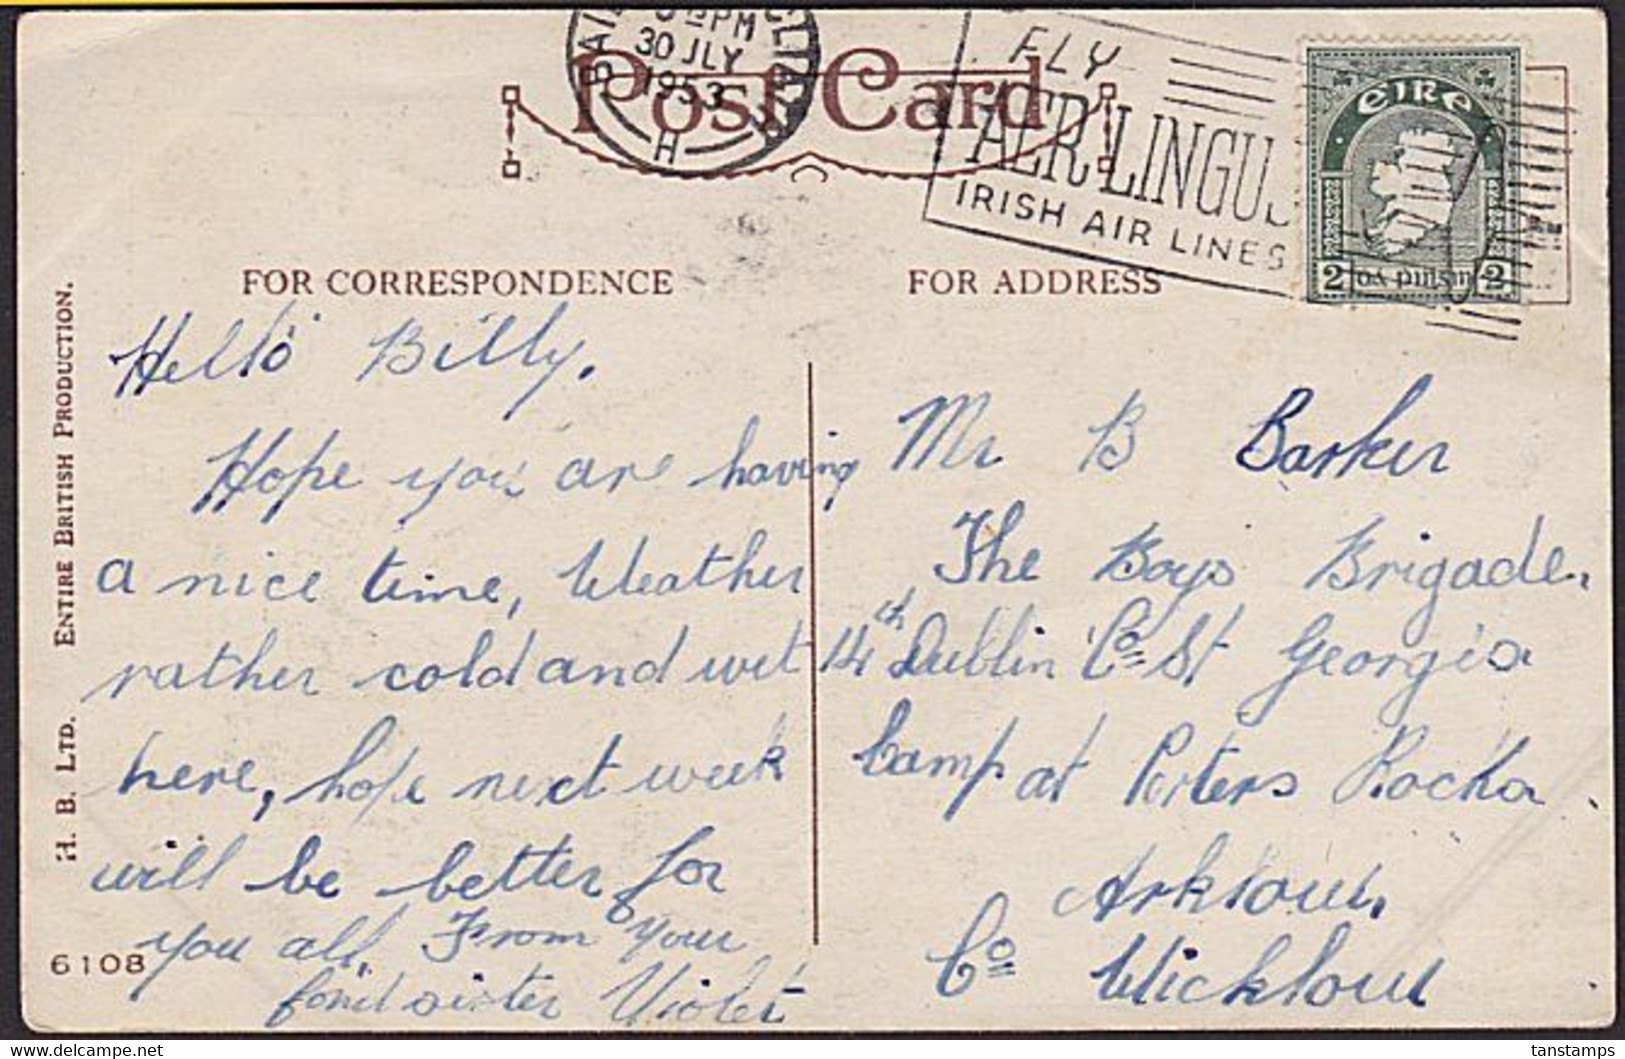 Post Card
PM
30 JLY
1953
H
FLY
AER LINGUS
IRISH AIR LINES
EIRE
2 2
FOR CORRESPONDENCE
FOR ADDRESS
H. B. LTD. ENTIRE BRITISH PRODUCTION.
Hello Billy,
Hope you are having
a nice time, Weather
rather cold and wet
here, hope next week
will be better for
you all, From your
fond sister Violet
6108
Mr B Barker
The Boys Brigade,
14th Dublin Co St Georges
Camp at Porters Rocks
Arklow,
Co Wicklow
tanstamps